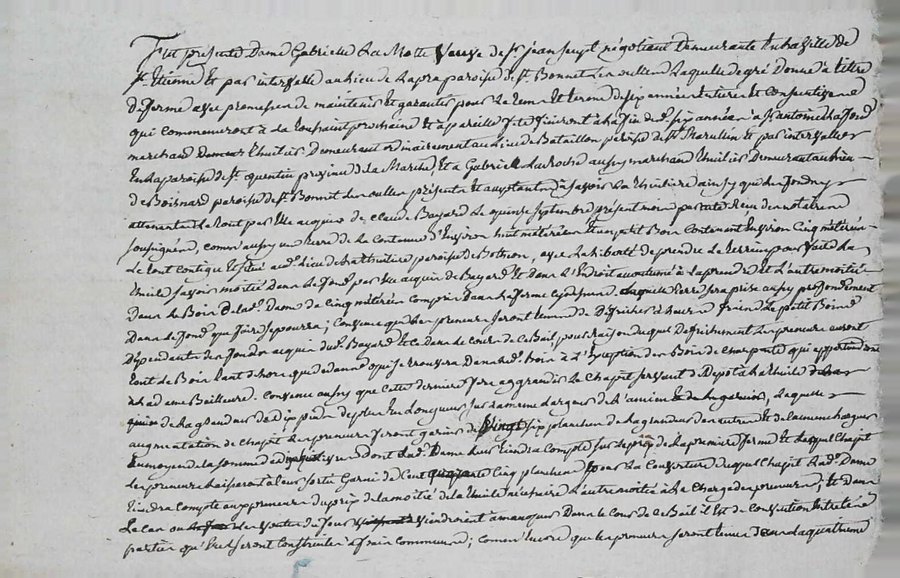 Fut présente Dame Gabrielle La Motte Veuve de Sr. jean
négotiant demeurante en la ville de
St. Etienne et par intervalle au lieu de Lapra paroisse de St. Bonnet les oulles Laquelle de gré Donne à titre
de ferme avec promesse de maintenir et garantir pour le tems et terme de six années entières et consécutives
qui commenceront à la toussaint prochaine et à pareille fête finiront à la fin des. six années à Sr. antoine
marchand thuilier Demeurant ordinairement au lieu de Bataillon paroisse de St. et par intervalles
en la paroisse de St. quentin province de la Marche, et à Gabriel Laroche aussy marchand thuilier Demeurant au lieu
de Boisnard paroisse de St. Bonnet les oulles présents et acceptants à savoir La thuilière ainsy que les fonds
attenants Le tout par Elle acquis de Claude Bayard Le quinze septembre présent mois par acte Reçu des notaires
soussignés, comme aussy une terre de la contenue d'Environ huit métérées et un petit Bois Contenant Environ Cinq métérées
Le tout contigu et situé aud. lieu de paroisse de Bothéon, avec la liberté de prendre le terrein pour faire la
thuile savoir moitié Dans le fond par Elle acquis de Bayard Et dans l'Endroit accoutumé à la prendre et l'autre moitié
Dans le Bois de lad. Dame de Cinq métérées compris Dans la ferme laquelle terre sera prise aussy profondement
Dans le fond que faire se pourra; Convenu que les preneurs seront tenus de Défricher à leurs fraix le petit Bois
Dépendant des fonds acquis dud. Bayard et ce Dans le cours de ce Bail, pour raison duquel Défrichement les preneurs auront
tout le Bois tant de que qui se trouvera Dans led. bois à l'Exception des Bois de charpente qui appartiendront
à lad. Dame Bailleuse. Convenu aussy que cette dernière fera aggrandir le Chapit servant de Dépot à la thuile
de la grandeur de dix pieds de plus en Longueur sur la même largeur de l'ancien laquelle
augmentation de Chapit les preneurs seront garnir de six planches de la grandeur des autres et de la même largeur
au moyen de la somme de dont lad. Dame leur tiendra Compte sur le prix de la première ferme et lequel Chapit
les preneurs laisseront à leur sortie Garni de Cent Cinq planches pour la Couverture duquel Chapit lad. Dame
tiendra Compte aux preneurs du prix de la moitié de la thuile nécessaire l'autre moitié à la Charge des preneurs; et dans
Le cas ou les voutes du four viendroient à manquer Dans le Cours de ce Bail il Est de convention Entre les
parties qu'Elles seront construites à fraix communs; comme Encore que les preneurs seront tenus